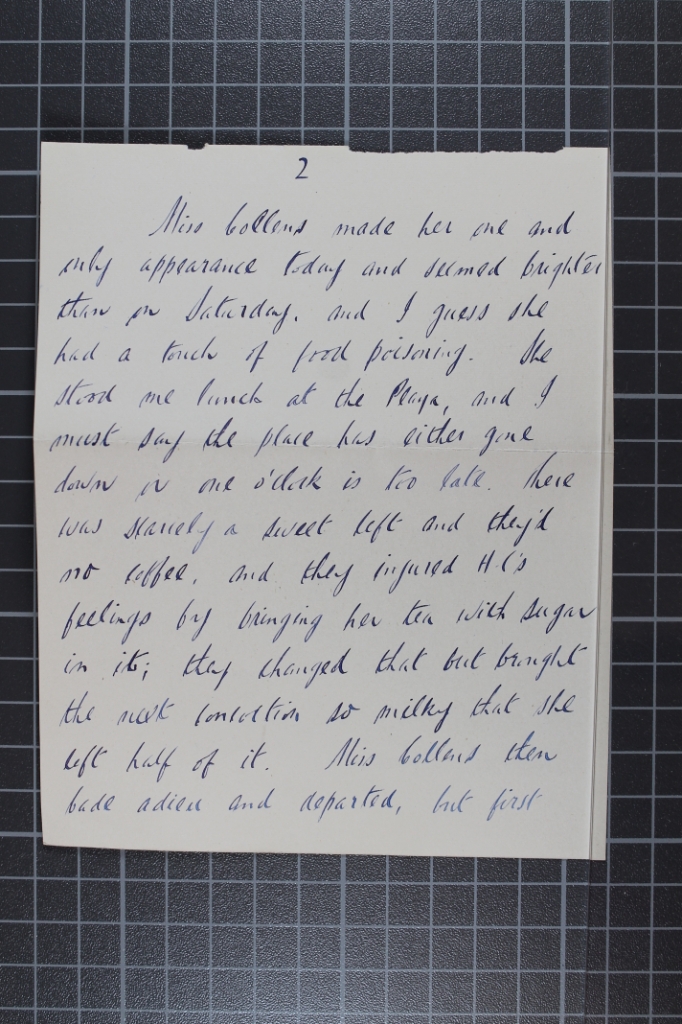 2
Miss Collens made her one and
only appearance today and seemed brighter
than on Saturday, and I guess she
had a touch of food poisoning. She
stood me lunch at the Playa, and I
must say the place has either gone
down or one o'clock is too late. There
was scarcely a sweet left and they'd
no coffee, and they injured H.C's
feelings by bringing her tea with sugar
in it; they changed that but brought
the next concoction so milky that she
left half of it. Miss Collens then
bade adieu and departed, but first